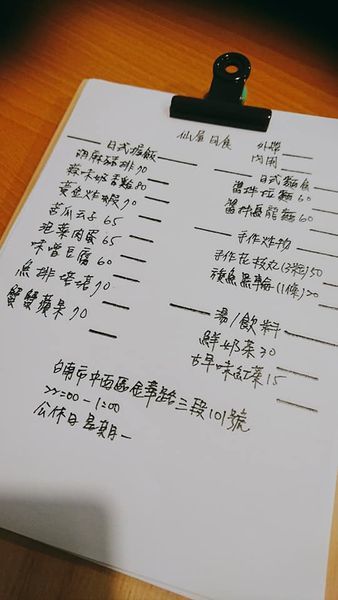 仙屋日食
外帶
內用
日式握飯
胡麻豬排70
蒜味奶香雞80
黃金炸蝦70
苦瓜天子65
泡菜肉蛋65
味噌豆腐60
魚排塔塔70
蟹蟹蘋果70
日式麵食
醬拌拉麵60
醬拌烏龍麵60
手作炸物
手作花枝丸(3粒)50
旗魚黑輪(1條)20
湯/飲料
鮮奶茶30
古早味紅茶15
台南市中西區金華路三段101號
22:00-1:00
公休日星期一